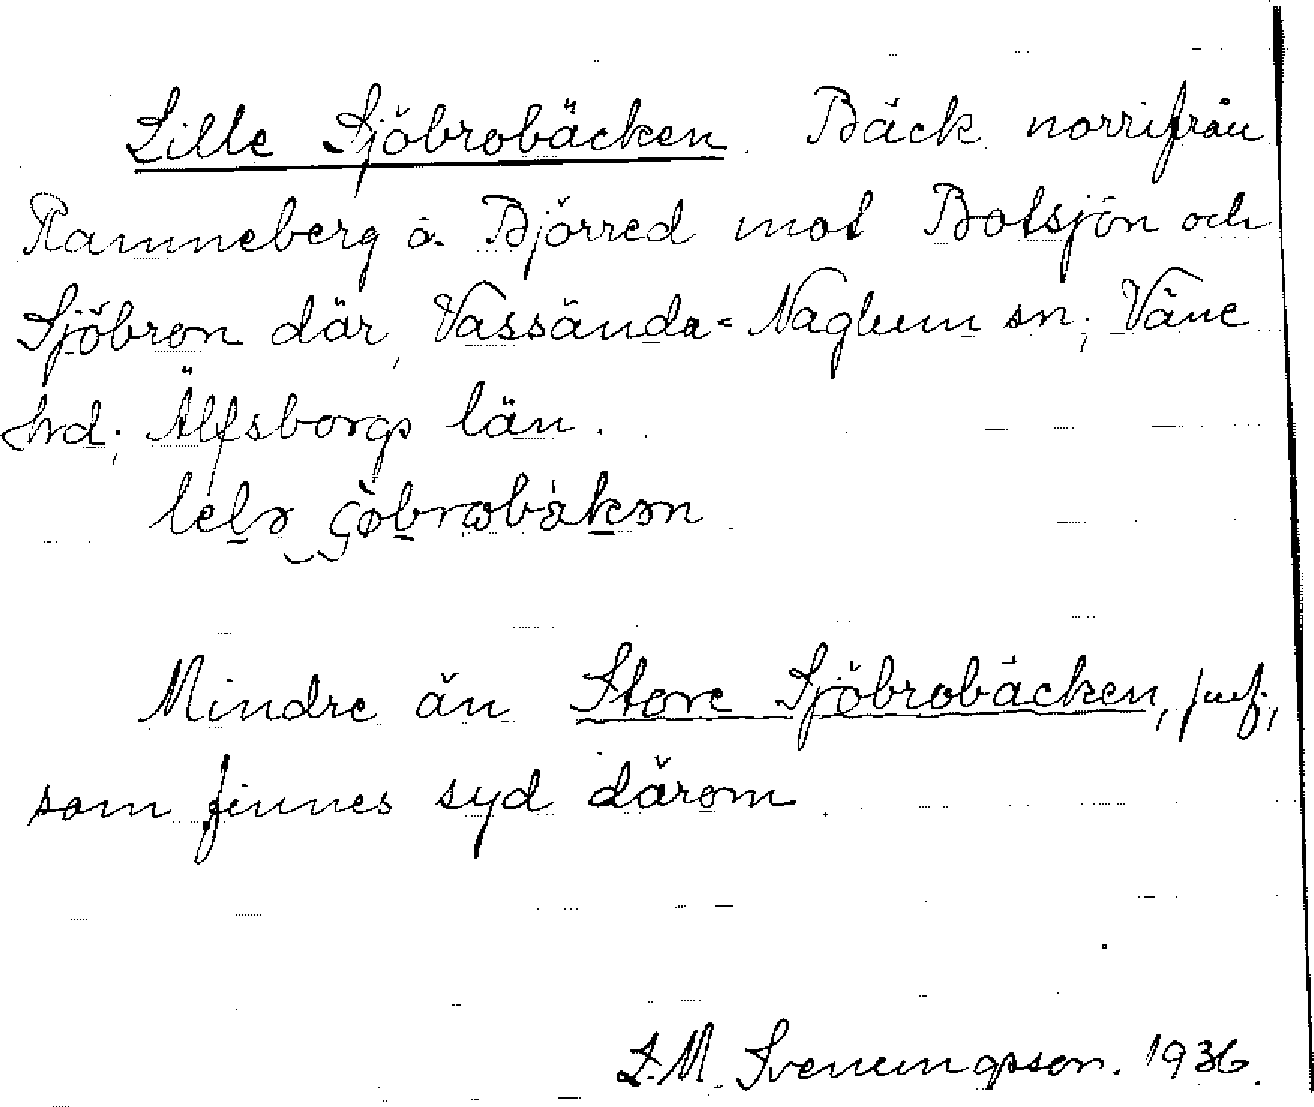 Lille Sjöbrobäcken. Bäck norrifrån
Ramneberg o. Björred mot Botsjön och
Sjöbron där, Vassända-Naglum sn, Väne
hrd, Älfsborgs län.
Mindre än Store Sjöbrobäcken, jmf,
som finnes syd därom.
L.M. Svenungsson. 1936.